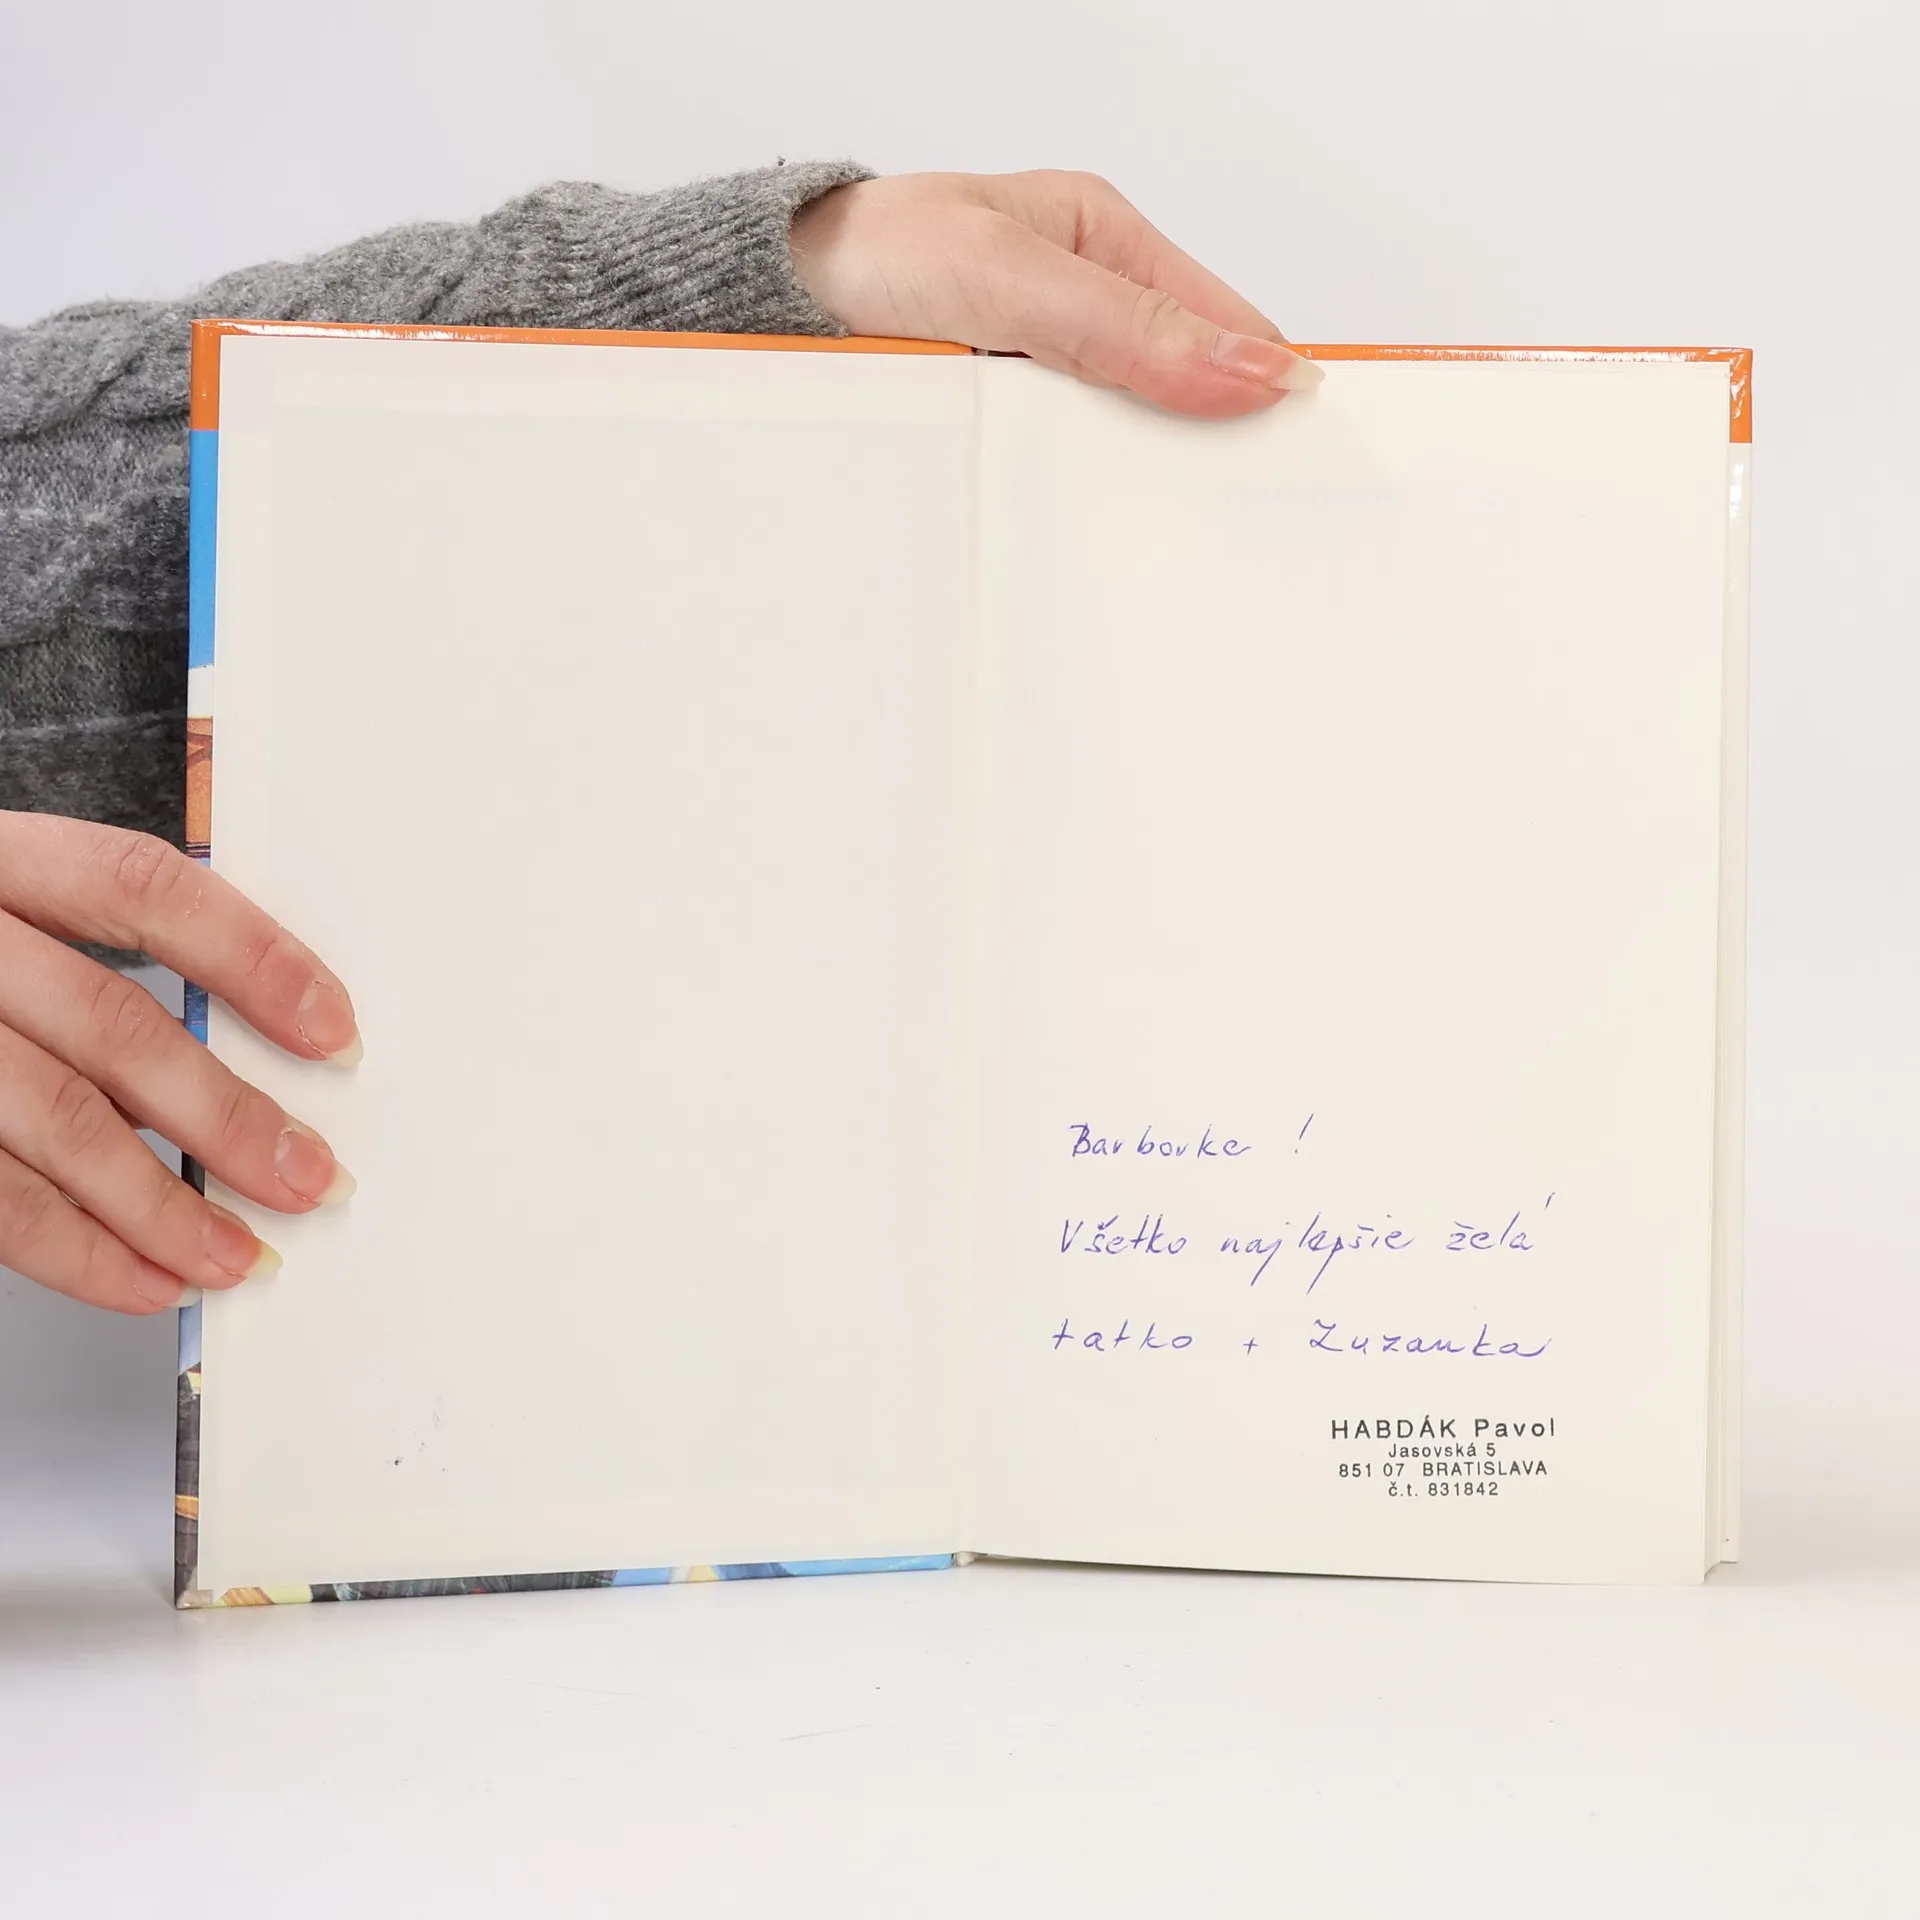 Barborke !
Všetko najlepšie želá
tatko + Zuzanka
HABDÁK Pavol
Jasovská 5
851 07 BRATISLAVA
č.t. 831842